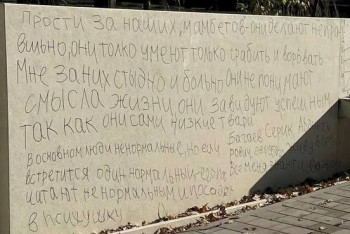 Прости за наших, мамбетов-они делают не пра
вильно, они толко умеют только грабить и воровать
Мне за них стыдно и больно они не понимают
смысла жизни они завидуют успешным
так как они сами низкие твари
Батаев Серик
в основном люди ненормальные, но если
встретится один нормальный-его
читают ненормальным и посадят
в психушку